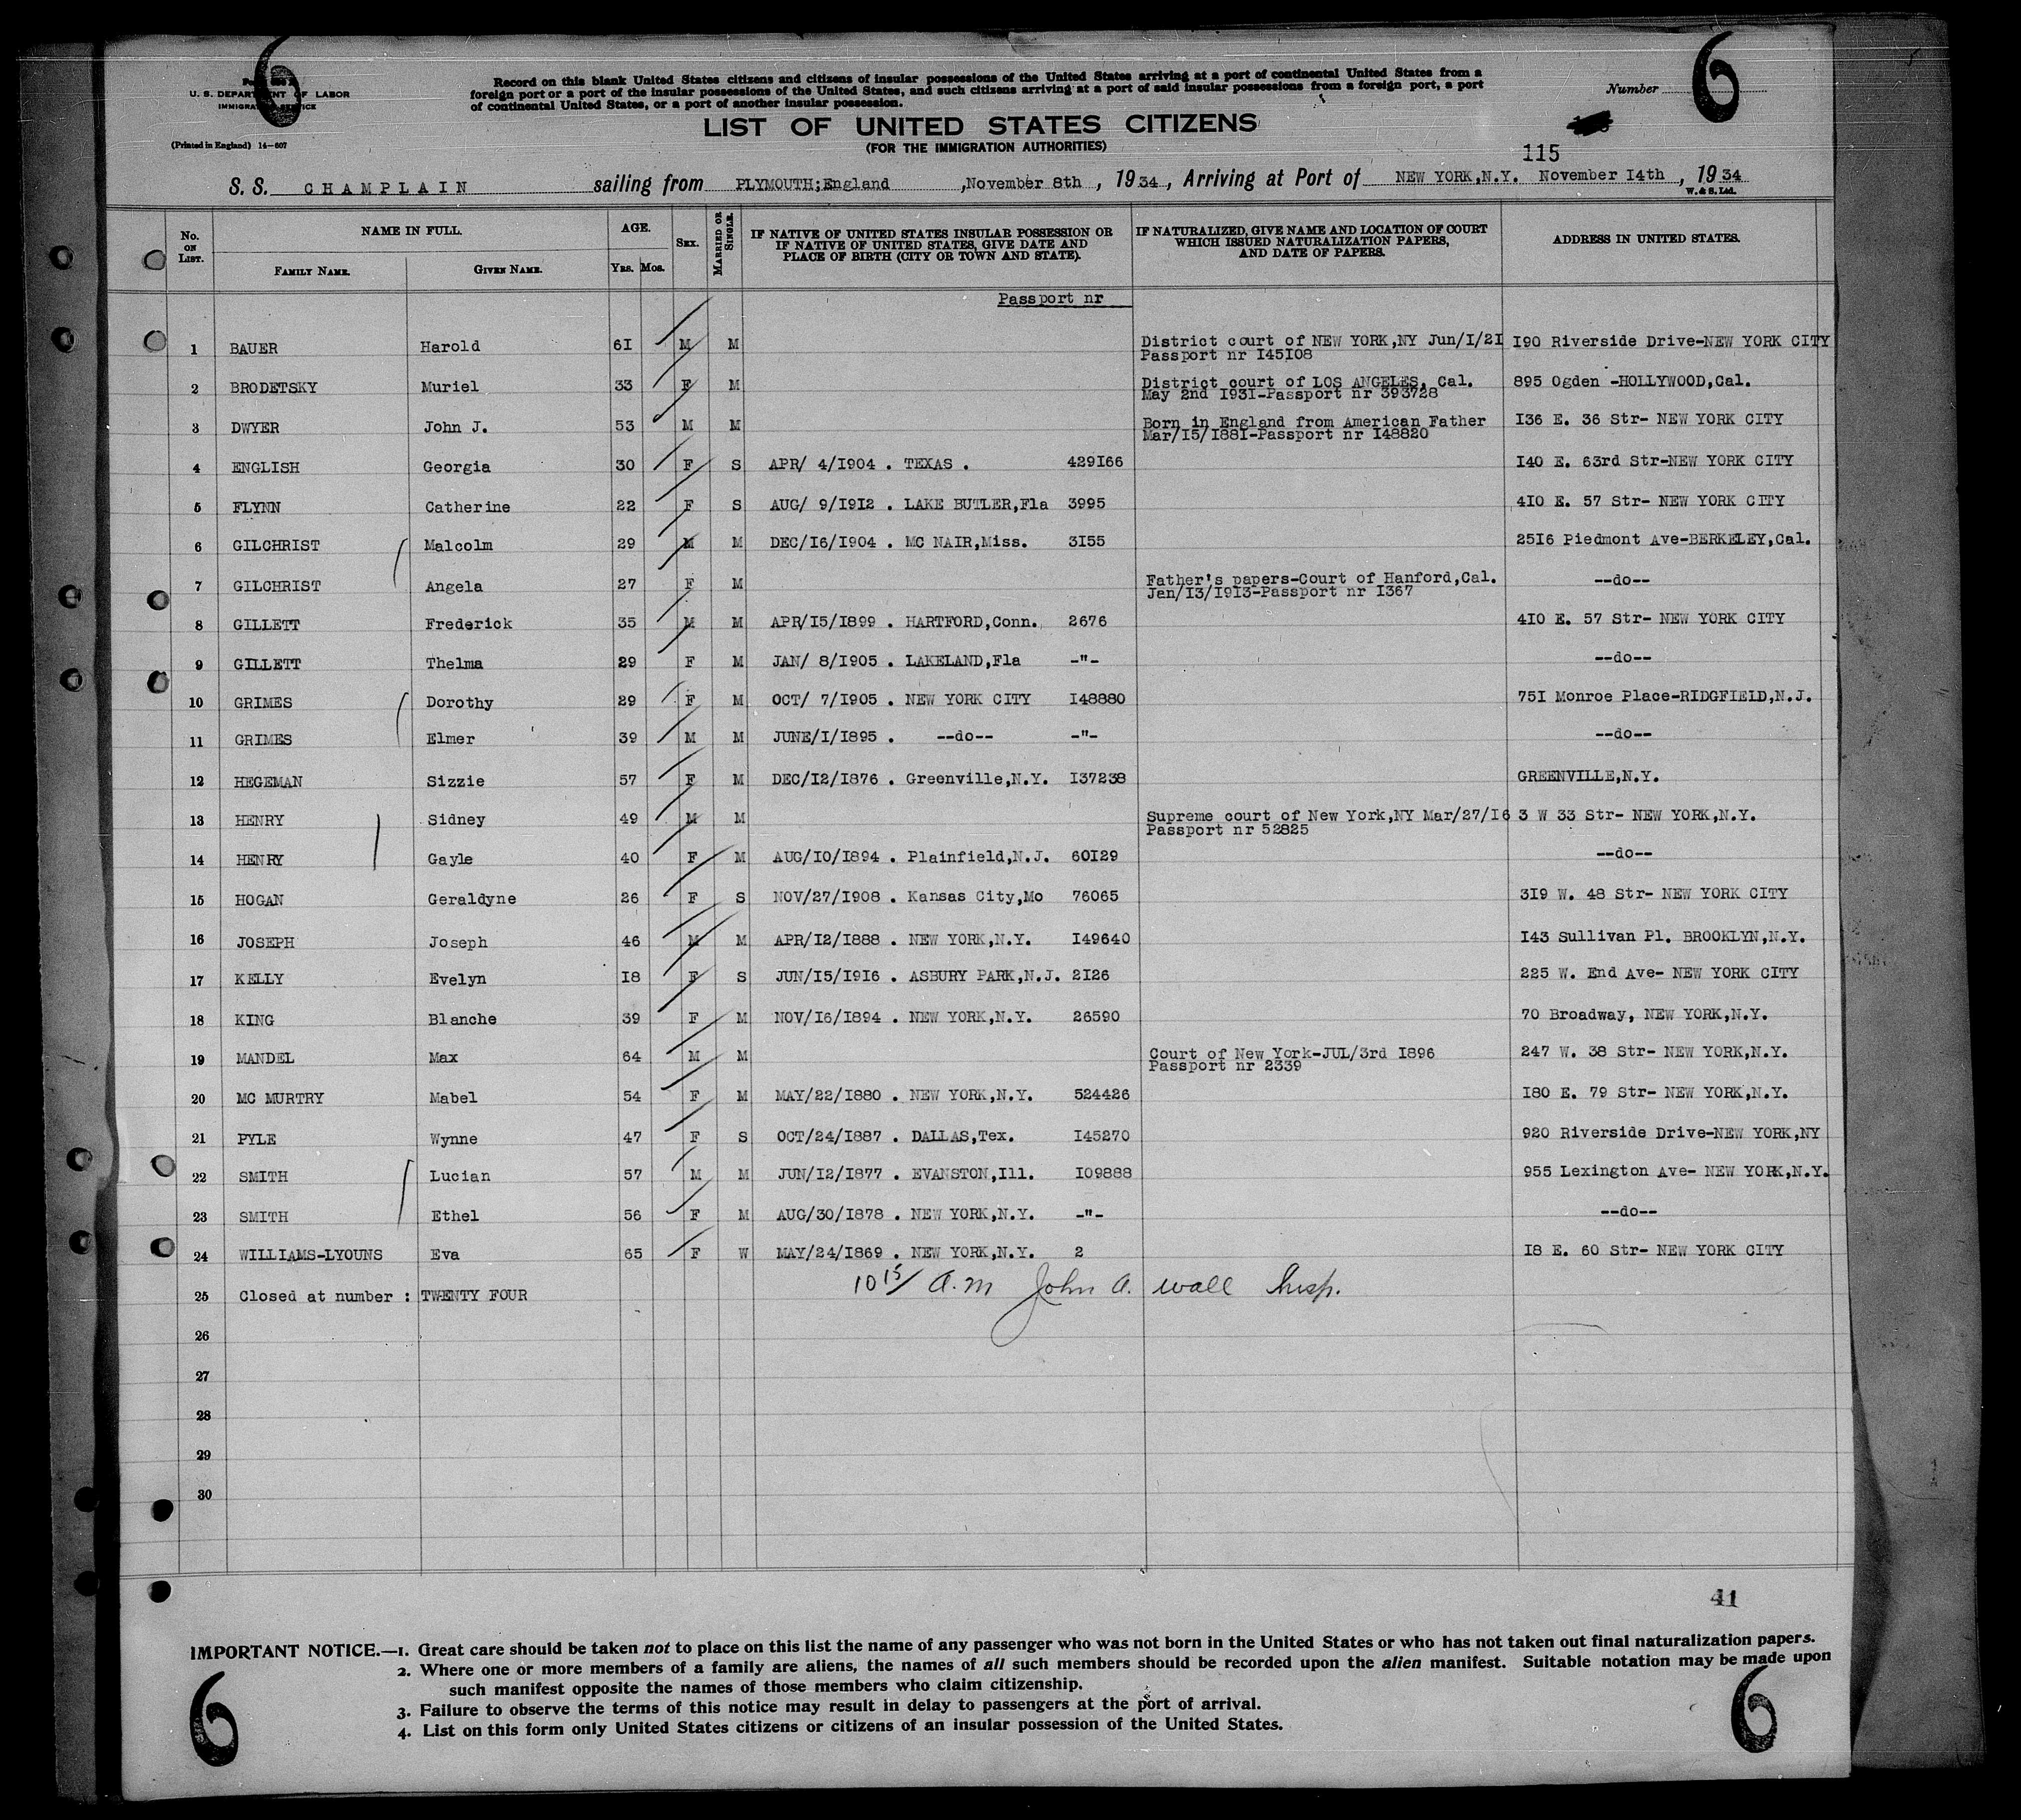 6
U. S. DEPARTMENT OF LABOR
IMMIGRATION SERVICE
(Printed in England) 14—607
Record on this blank United States citizens and citizens of insular possessions of the United States arriving at a port of continental United States from a
foreign port or a port of the insular possessions of the United States, and such citizens arriving at a port of said insular possessions from a foreign port, a port
of continental United States, or a port of another insular possession.
Number 6
LIST OF UNITED STATES CITIZENS
(FOR THE IMMIGRATION AUTHORITIES)
115
S. S. CHAMPLAIN sailing from PLYMOUTH;England ,November 8th , 1934 , Arriving at Port of NEW YORK,N.Y. November 14th , 1934
W. & S. Ltd.
No. ON LIST. NAME IN FULL. FAMILY NAME. GIVEN NAME. AGE. YRS. MOS. SEX. MARRIED OR SINGLE. IF NATIVE OF UNITED STATES INSULAR POSSESSION OR IF NATIVE OF UNITED STATES, GIVE DATE AND PLACE OF BIRTH (CITY OR TOWN AND STATE). IF NATURALIZED, GIVE NAME AND LOCATION OF COURT WHICH ISSUED NATURALIZATION PAPERS, AND DATE OF PAPERS. ADDRESS IN UNITED STATES.
Passport nr
1 BAUER Harold 6I M M District court of NEW YORK,NY Jun/I/2I I90 Riverside Drive-NEW YORK CITY
Passport nr I45I08
2 BRODETSKY Muriel 33 F M District court of LOS ANGELES, Cal. 895 Ogden -HOLLYWOOD,Cal.
May 2nd I93I-Passport nr 393728
3 DWYER John J. 53 M M Born in England from American Father I36 E. 36 Str- NEW YORK CITY
Mar/I5/I88I-Passport nr I48820
4 ENGLISH Georgia 30 F S APR/ 4/I904 . TEXAS . 429I66 I40 E. 63rd Str-NEW YORK CITY
5 FLYNN Catherine 22 F S AUG/ 9/I9I2 . LAKE BUTLER,Fla 3995 4I0 E. 57 Str- NEW YORK CITY
6 GILCHRIST Malcolm 29 M M DEC/I6/I904 . MC NAIR,Miss. 3I55 25I6 Piedmont Ave-BERKELEY,Cal.
7 GILCHRIST Angela 27 F M Father's papers-Court of Hanford,Cal. --do--
Jan/I3/I9I3-Passport nr I367
8 GILLETT Frederick 35 M M APR/I5/I899 . HARTFORD,Conn. 2676 4I0 E. 57 Str- NEW YORK CITY
9 GILLETT Thelma 29 F M JAN/ 8/I905 . LAKELAND,Fla -"- --do--
10 GRIMES Dorothy 29 F M OCT/ 7/I905 . NEW YORK CITY I48880 75I Monroe Place-RIDGFIELD,N.J.
11 GRIMES Elmer 39 M M JUNE/I/I895 . --do-- -"- --do--
12 HEGEMAN Sizzie 57 F M DEC/I2/I876 . Greenville,N.Y. I37238 GREENVILLE,N.Y.
13 HENRY Sidney 49 M M Supreme court of New York,NY Mar/27/I6 3 W 33 Str- NEW YORK,N.Y.
Passport nr 52825
14 HENRY Gayle 40 F M AUG/I0/I894 . Plainfield,N.J. 60I29 --do--
15 HOGAN Geraldyne 26 F S NOV/27/I908 . Kansas City,Mo 76065 3I9 W. 48 Str- NEW YORK CITY
16 JOSEPH Joseph 46 M M APR/I2/I888 . NEW YORK,N.Y. I49640 I43 Sullivan Pl. BROOKLYN,N.Y.
17 KELLY Evelyn I8 F S JUN/I5/I9I6 . ASBURY PARK,N.J. 2I26 225 W. End Ave- NEW YORK CITY
18 KING Blanche 39 F M NOV/I6/I894 . NEW YORK,N.Y. 26590 70 Broadway, NEW YORK,N.Y.
19 MANDEL Max 64 M M Court of New York-JUL/3rd I896 247 W. 38 Str- NEW YORK,N.Y.
Passport nr 2339
20 MC MURTRY Mabel 54 F M MAY/22/I880 . NEW YORK,N.Y. 524426 I80 E. 79 Str- NEW YORK,N.Y.
21 PYLE Wynne 47 F S OCT/24/I887 . DALLAS,Tex. I45270 920 Riverside Drive-NEW YORK,NY
22 SMITH Lucian 57 M M JUN/I2/I877 . EVANSTON,Ill. I09888 955 Lexington Ave- NEW YORK,N.Y.
23 SMITH Ethel 56 F M AUG/30/I878 . NEW YORK,N.Y. -"- --do--
24 WILLIAMS-LYOUNS Eva 65 F W MAY/24/I869 . NEW YORK,N.Y. 2 I8 E. 60 Str- NEW YORK CITY
10 15/ A.M John A. Wall Insp.
25 Closed at number : TWENTY FOUR
26
27
28
29
30
41
IMPORTANT NOTICE.—1. Great care should be taken not to place on this list the name of any passenger who was not born in the United States or who has not taken out final naturalization papers.
2. Where one or more members of a family are aliens, the names of all such members should be recorded upon the alien manifest. Suitable notation may be made upon
such manifest opposite the names of those members who claim citizenship.
3. Failure to observe the terms of this notice may result in delay to passengers at the port of arrival.
4. List on this form only United States citizens or citizens of an insular possession of the United States.
6
6